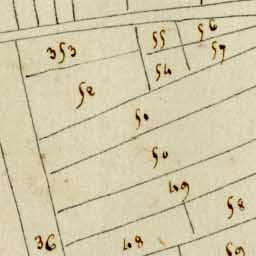 56
55
353
57
54
52
50
49
58
36
48
59